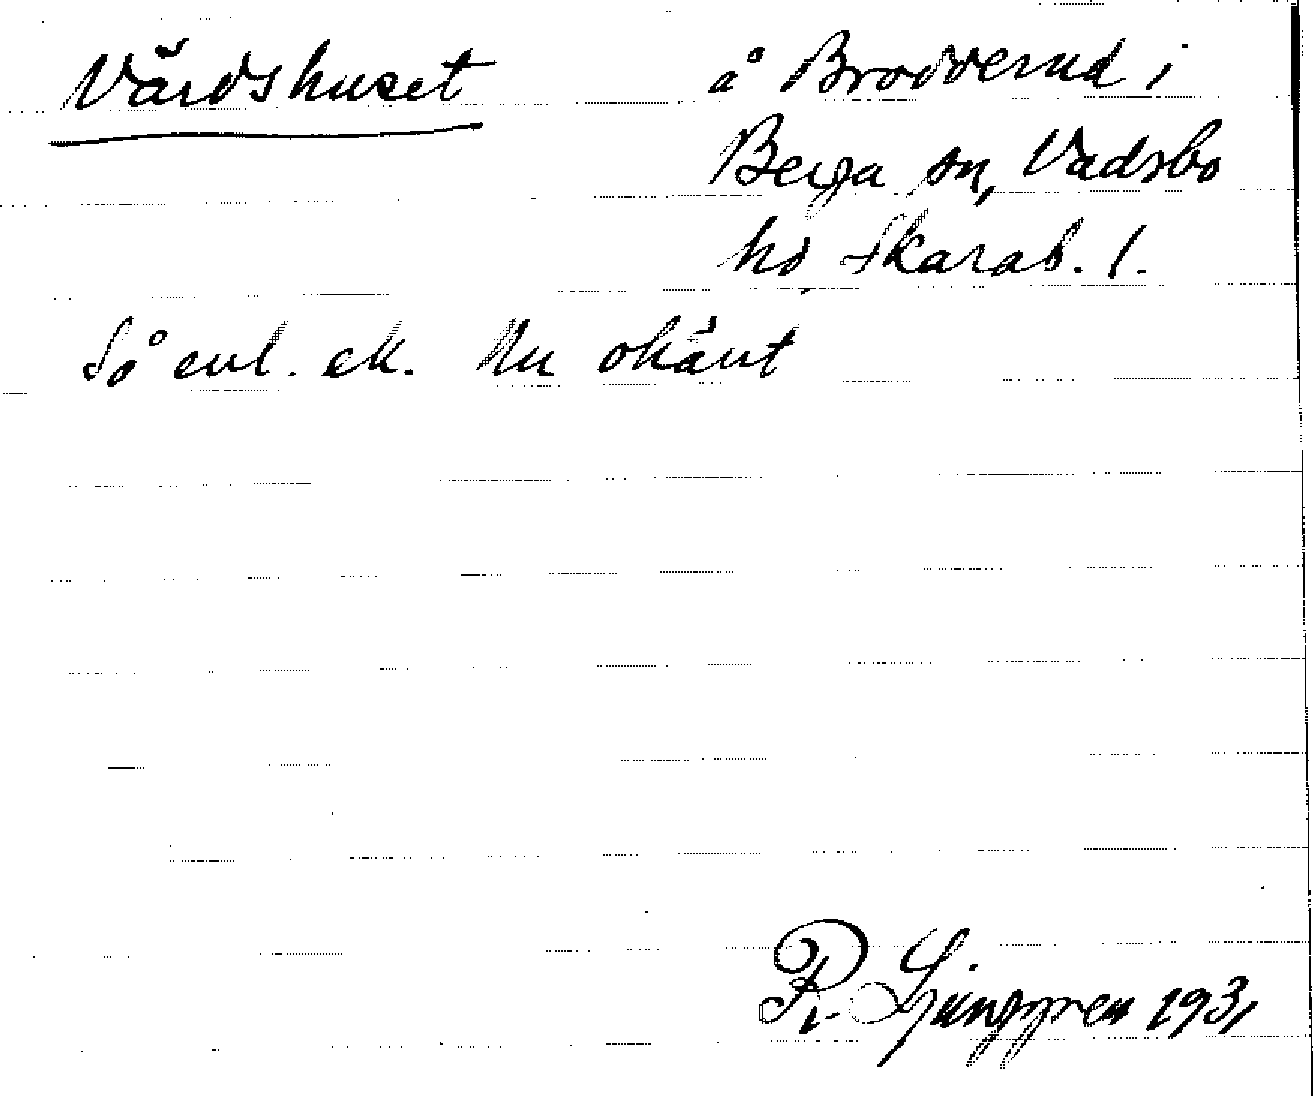 Värdshuset
å Brodderud i
Berga sn, Vadsbo
hd, Skarab. l.
Så enl. ek. Nu okänt
R. Ljunggren 1931